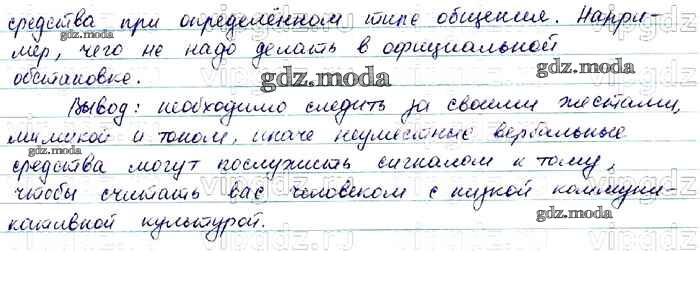 средства при определённом типе общения. Напри-
мер, чего не надо делать в официальной
обстановке.
gdz.moda
gdz.moda
Вывод: необходимо следить за своими жестами,
gdz.moda
мимикой и тоном, иначе неуместные вербальные
средства могут послужить сигналом к тому,
чтобы считать вас человеком с низкой коммуни-
gdz.moda
кативной культурой.
vipgdz.ru